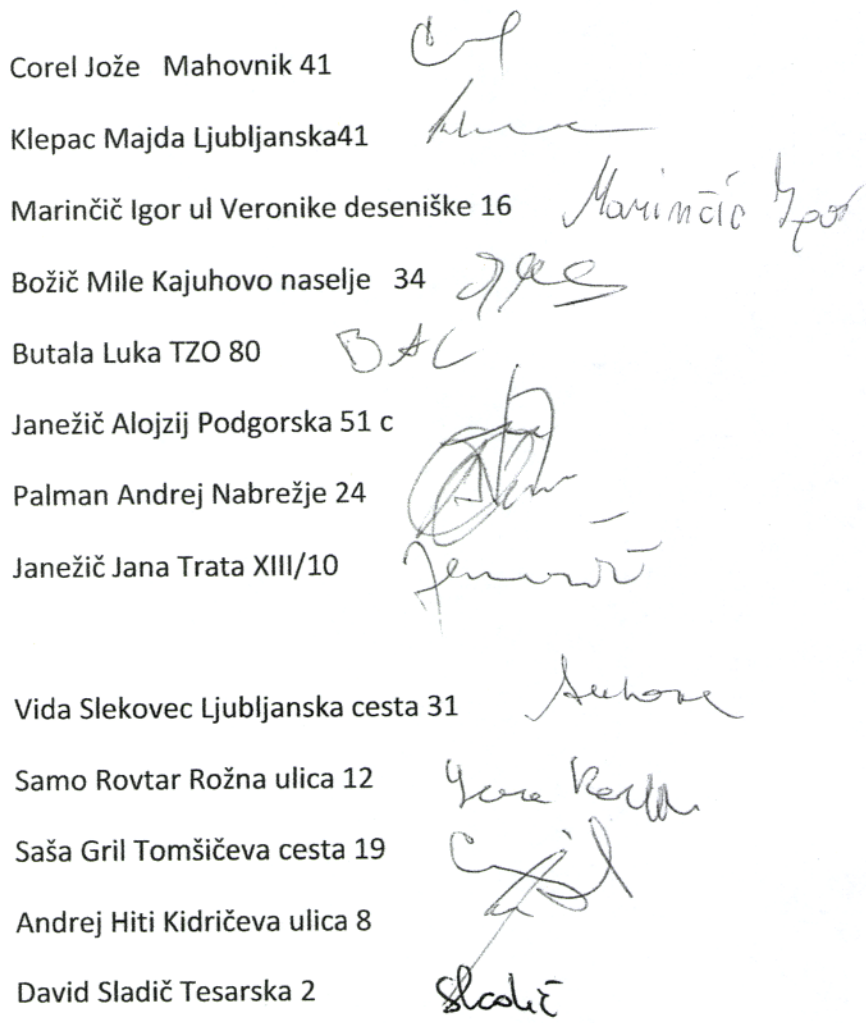 Corel Jože Mahovnik 41
Klepac Majda Ljubljanska41
Marinčič Igor ul Veronike deseniške 16 Marinčič Igor
Božič Mile Kajuhovo naselje 34
Butala Luka TZO 80
Janežič Alojzij Podgorska 51 c
Palman Andrej Nabrežje 24
Janežič Jana Trata XIII/10
Vida Slekovec Ljubljanska cesta 31
Samo Rovtar Rožna ulica 12
Saša Gril Tomšičeva cesta 19
Andrej Hiti Kidričeva ulica 8
David Sladič Tesarska 2 Sladič